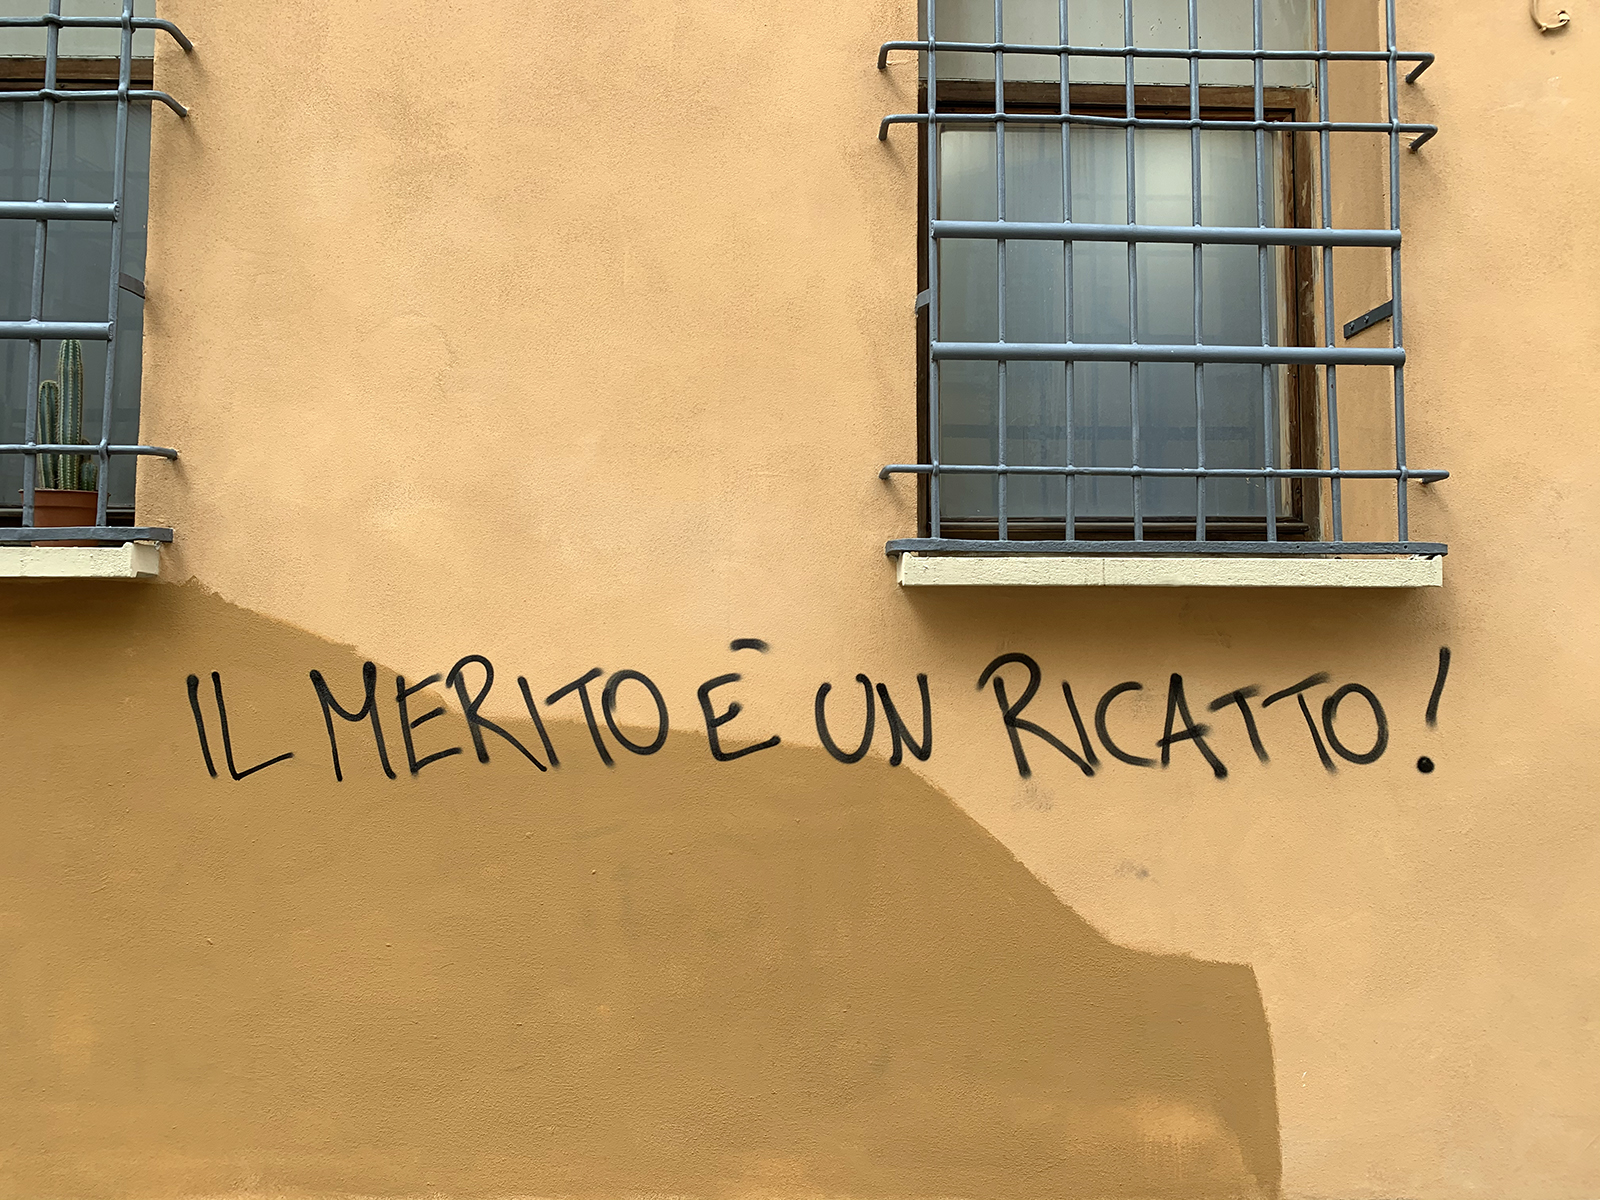 IL MERITO È UN RICATTO!